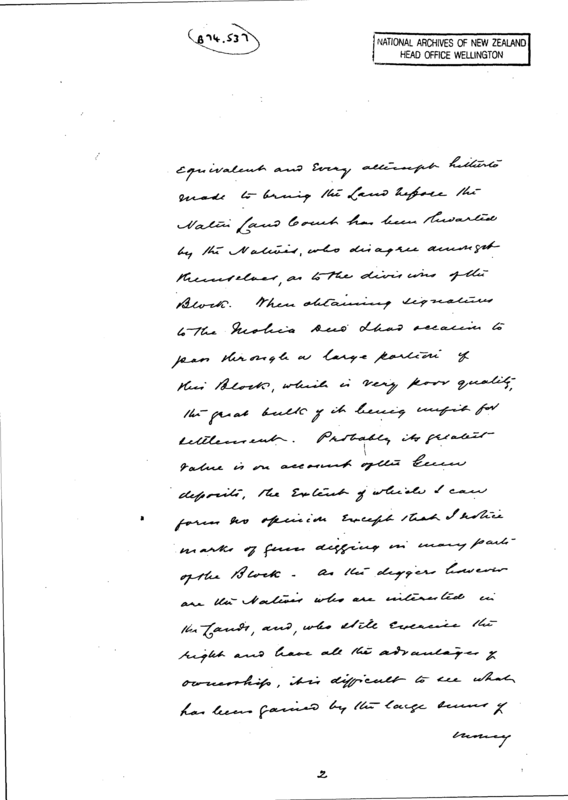 B74.537
NATIONAL ARCHIVES OF NEW ZEALAND
HEAD OFFICE WELLINGTON
equivalent and every attempt hitherto
made to bring the Land before the
Native Land Court has been thwarted
by the Natives, who disagree amongst
themselves, as to the divisions of the
Block. When obtaining signatures
to the Deed I had occasion to
pass through a large portion of
this Block, which is very poor quality,
the great bulk of it being unfit for
settlement. Probably its greatest
value is on account of the Gum
deposits, the extent of which I can
form no opinion except that I notice
marks of gum digging in many parts
of the Block - as the diggers however
are the Natives who are interested in
the Lands, and, who still exercise the
right and have all the advantages of
ownership, it is difficult to see what
has been gained by the large sums of
money
2